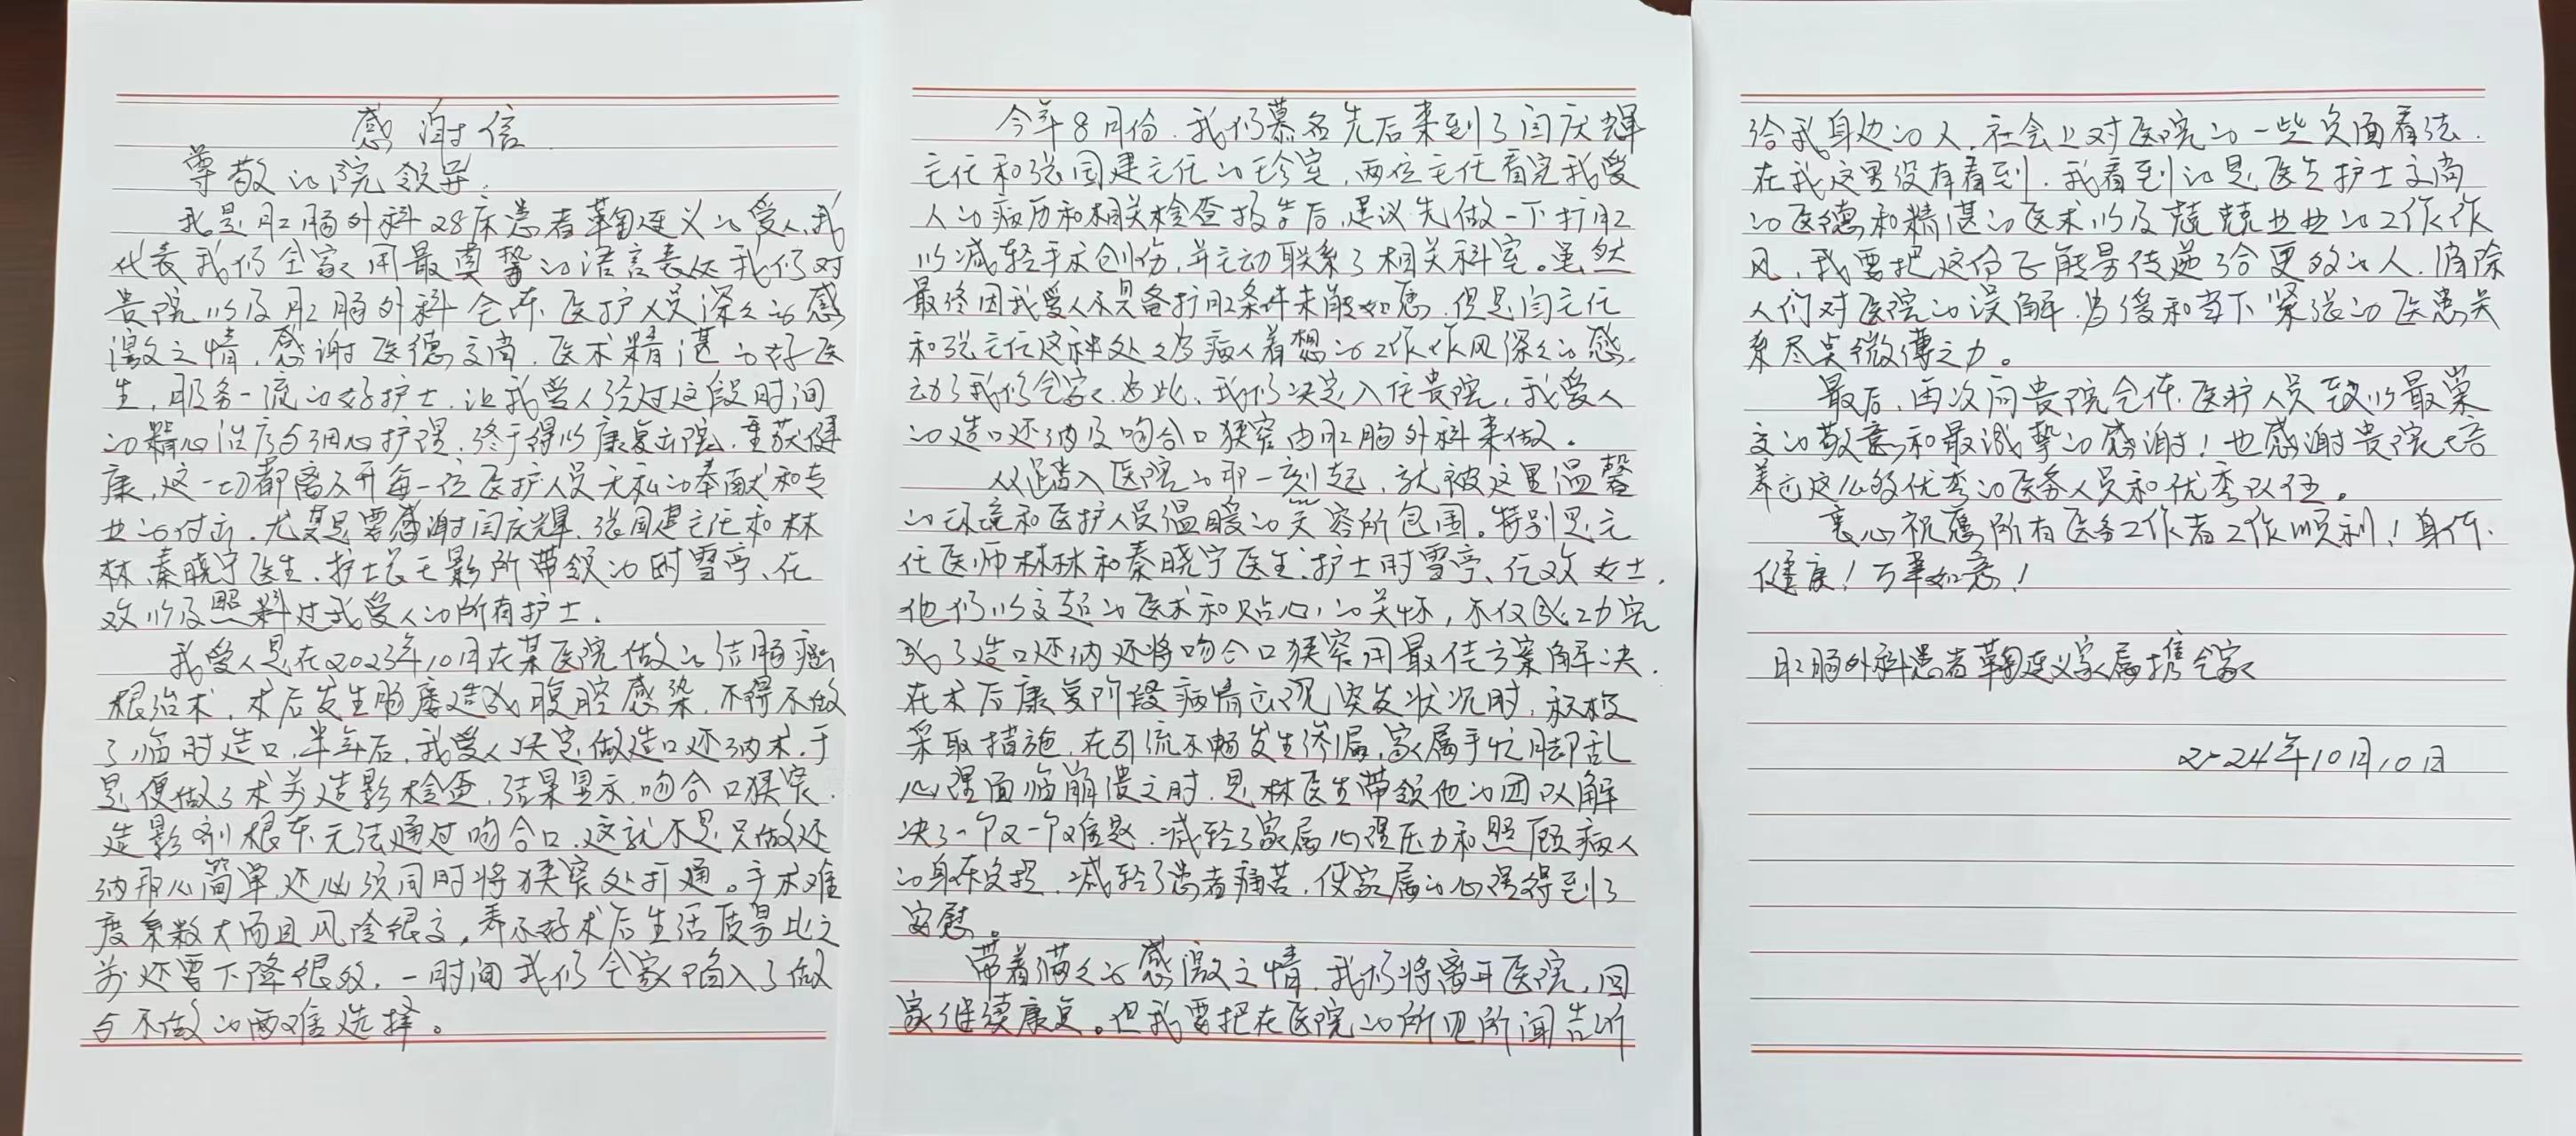 感谢信
尊敬的院领导:
我是肛肠外科28床患者鞠连义的爱人,我
代表我们全家用最真挚的语言表达我们对
贵院以及肛肠外科全体医护人员深深的感
激之情,感谢医德高尚,医术精湛的好医
生,服务一流的好护士,让我爱人经过这段时间
的精心治疗与细心护理,终于得以康复出院,重获健
康,这一切都离不开每一位医护人员无私的奉献和专
业的付出,尤其是要感谢闫庆辉、张国建主任和林
林、秦晓宁医生,护士长王影所带领的时雪亭、任
政以及照料过我爱人的所有护士.
我爱人是在2023年10月在某医院做的结肠癌
根治术,术后发生肠瘘造成腹腔感染,不得不做
了临时造口,半年后,我爱人决定做造口还纳术,于
是便做了术前造影检查,结果显示,吻合口狭窄,
造影剂根本无法通过吻合口,这就不是只做还
纳那么简单,还必须同时将狭窄处打通。手术难
度系数大而且风险很高,弄不好术后生活质量比之
前还要下降很多,一时间我们全家陷入了做
与不做的两难选择。
今年8月份,我们慕名先后来到了闫庆辉
主任和张国建主任的诊室,两位主任看完我爱
人的病历和相关检查报告后,建议先做一下扩肛
以减轻手术创伤,并主动联系了相关科室。虽然
最终因我爱人不具备扩肛条件未能如愿,但是闫主任
和张主任这种处处为病人着想的工作作风深深的感
动了我们全家,为此,我们决定入住贵院,我爱人
的造口还纳及吻合口狭窄由肛肠外科来做。
从踏入医院的那一刻起,就被这里温馨
的环境和医护人员温暖的笑容所包围。特别是主
任医师林林和秦晓宁医生,护士时雪亭、任政女士,
他们以高超的医术和贴心的关怀,不仅成功完
成了造口还纳还将吻合口狭窄用最佳方案解决.
在术后康复阶段病情出现突发状况时,积极
采取措施,在引流不畅发生渗漏,家属手忙脚乱
心理面临崩溃之时,是林医生带领他的团队解
决了一个又一个难题,减轻了家属心理压力和照顾病人
的身体负担,减轻了患者痛苦,使家属的心理得到了
安慰。
带着满满的感激之情,我们将离开医院,回
家继续康复。但我要把在医院的所见所闻告诉
给我身边的人,社会上对医院的一些负面看法.
在我这里没有看到,我看到的是医生护士高尚
的医德和精湛的医术以及兢兢业业的工作作
风,我要把这份正能量传递给更多的人,消除
人们对医院的误解,为缓和当下紧张的医患关
系尽点微薄之力。
最后,再次向贵院全体医护人员致以最崇
高的敬意和最诚挚的感谢!也感谢贵院培
养出这么多优秀的医务人员和优秀队伍。
衷心祝愿所有医务工作者工作顺利!身体
健康!万事如意!
肛肠外科患者鞠连义家属携全家
2024年10月10日